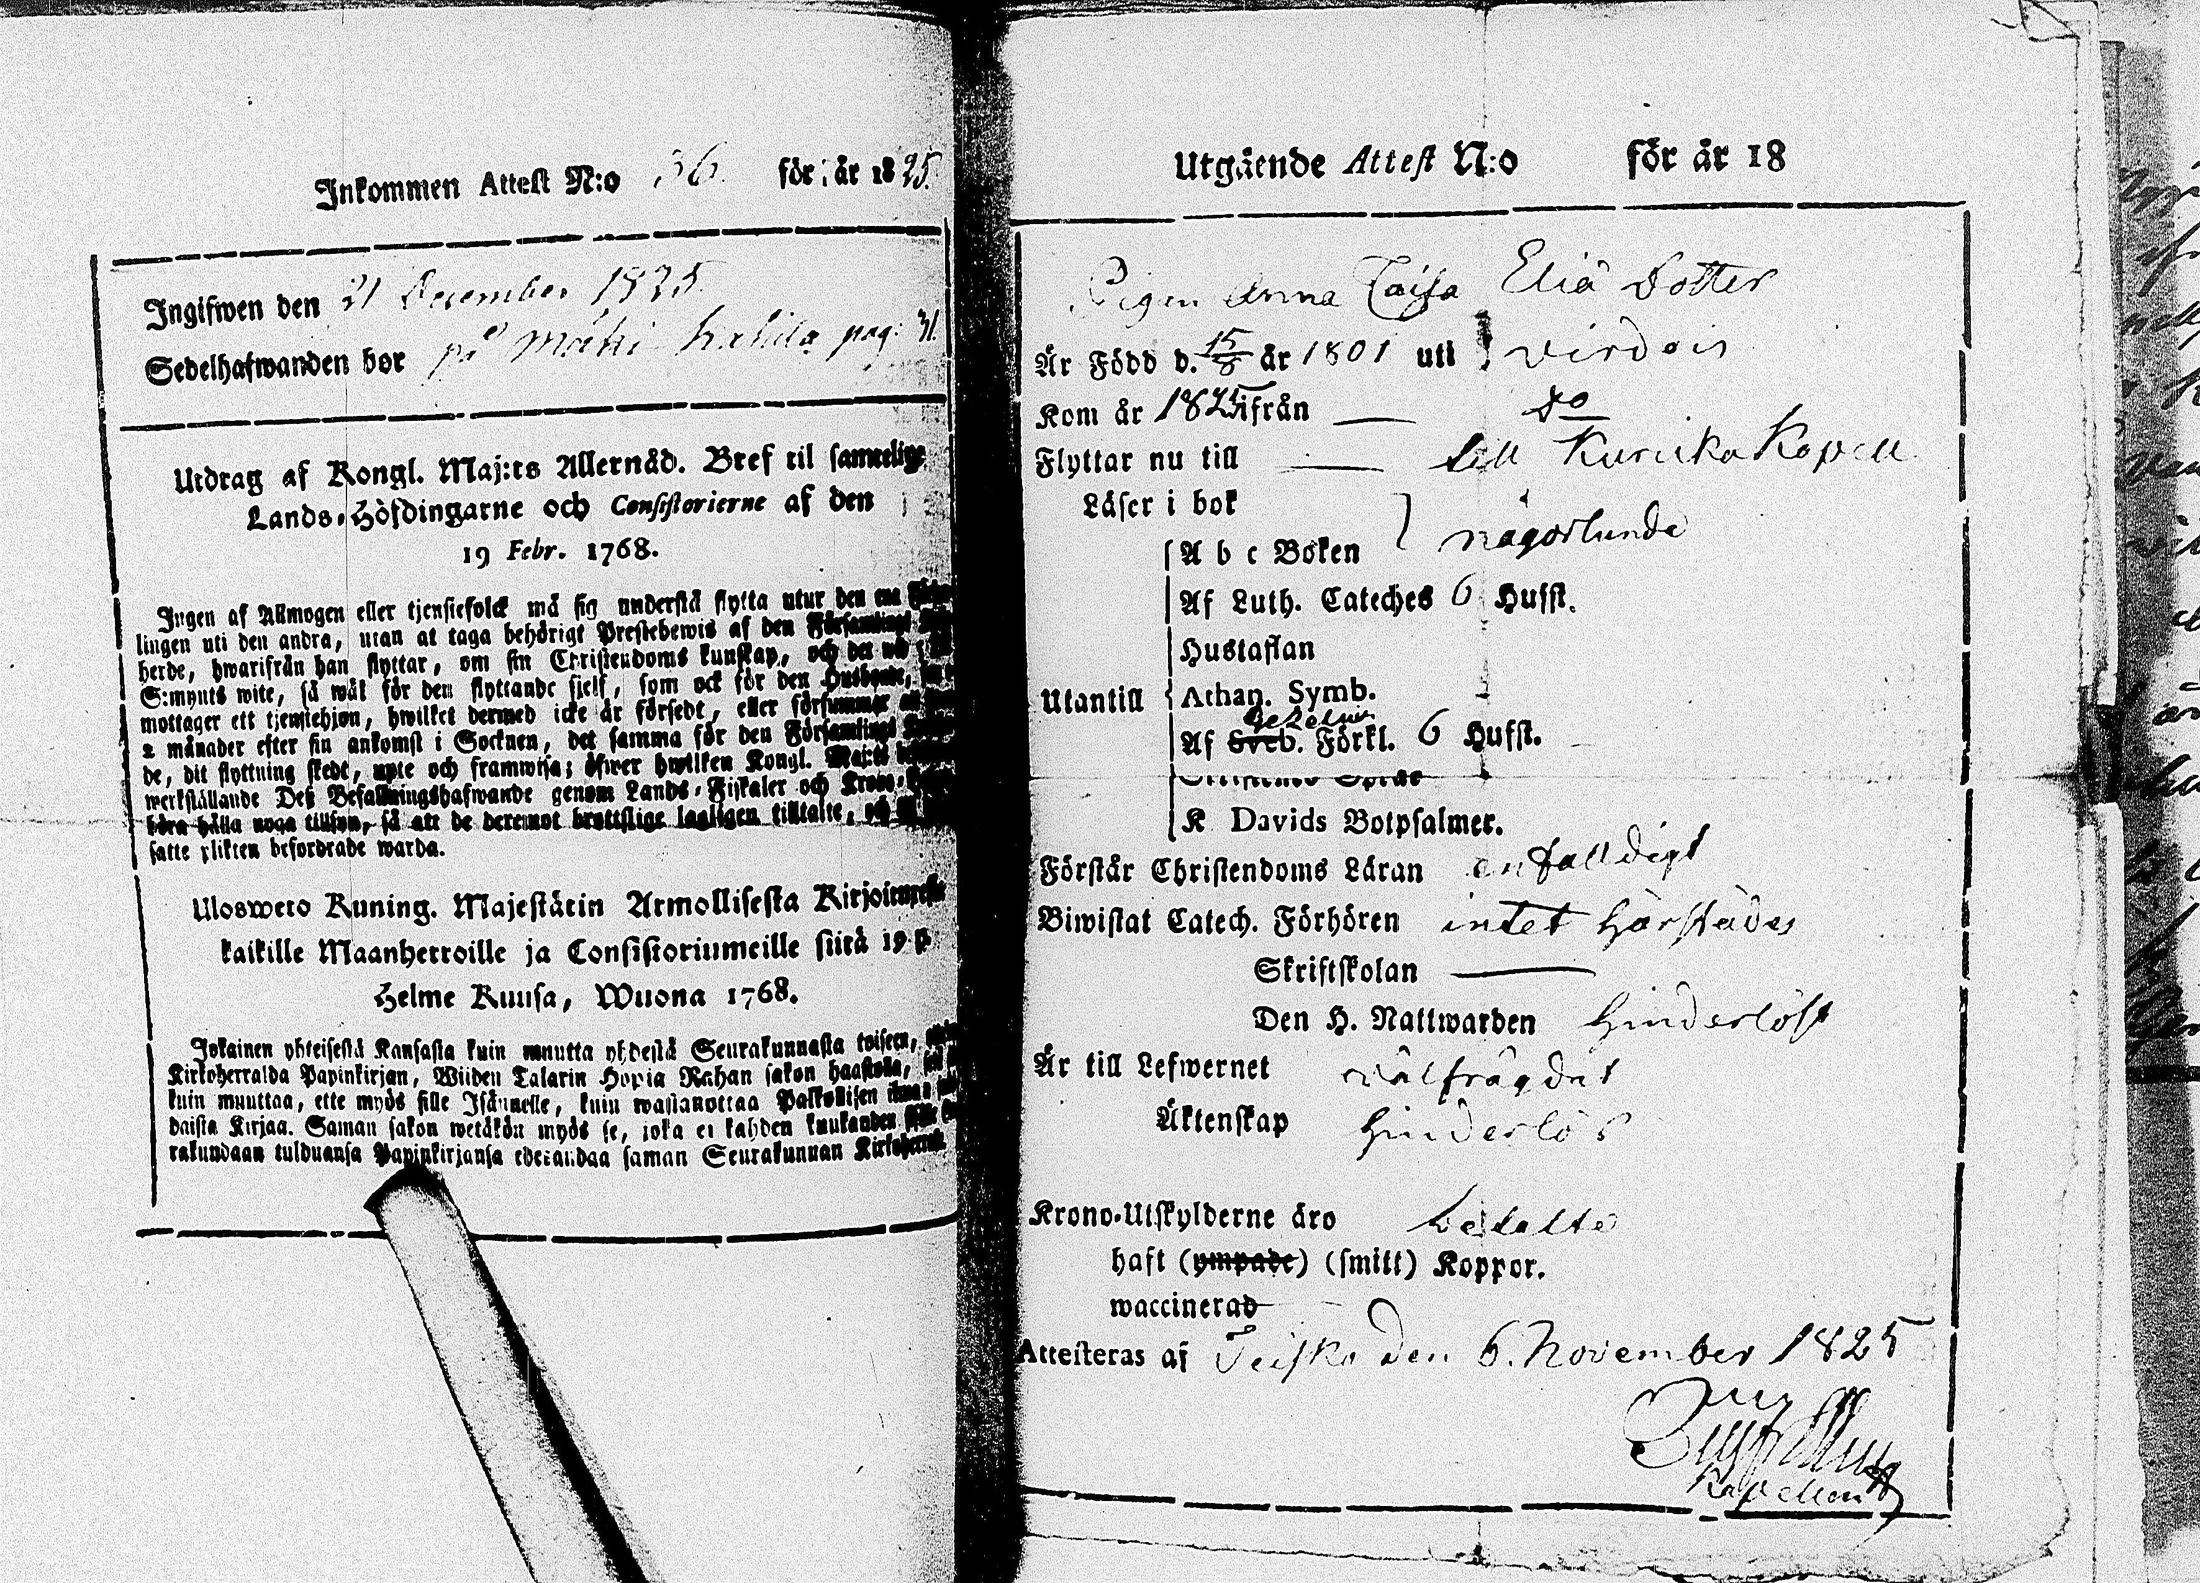 Inkommen Attest N:o 36. för år 1825.
Ingifwen den 21 December 1825.
Sedelhafwanden bor på Mäki pag: 31.
Utdrag af Kongl. Maj:ts Allernåd. Bref til samtelige
Lands-Höfdingarne och Consistorierne af den
19 Febr. 1768.
Ingen af Allmogen eller tjenstefolck må sig understå flytta utur den ena
lingen uti den andra, utan at taga behörigt Prestebewis af den Församlings
herde, hwarifrån han flyttar, om sin Christendoms kunskap, och det wid
S:mynts wite, så wäl för den flyttande sielf, som ock för den Husbonde,
mottager ett tjenstehjon, hwilket dermed icke är försedt, eller försummar
2 månader efter sin ankomst i Socknen, det samma för den Församlings
de, dit flyttning skedt, upte och framwisa; öfwer hwilken Kongl. Maj:ts
werkställande Dess Befallningshafwande genom Lands-Fiskaler och Krono-
böra hålla noga tillsyn, så att de deremot brottslige lagligen tilltalte, och
satte plikten befordrade warda.
Ulosweto Kuning. Majestätin Armollisesta Kirjoituxesta
kaikille Maanherroille ja Consistoriumeille siitä 19 p.
Helme Kuusa, Wuona 1768.
Jokainen yhteisestä Kansasta kuin muutta yhdestä Seurakunnasta toiseen,
Kirkoherralda Papinkirjan, Wiiden Talarin Hopia Rahan sakon haastolla,
kuin muuttaa, ette myös sille Isännelle, kuin wastanottaa Palkollisen ilman
daista Kirjaa. Saman sakon wetäkön myös se, joka ei kahden kuukauden
rakundaan tulduansa Papinkirjansa edesandaa saman Seurakunnan Kirkoherralle
Utgående Attest N:o för år 18
Pigan Anna Caisa Eliä Dotter
Är Född d. 15/8 år 1801 uti Virdois
Kom år 1825 ifrån — Do
Flyttar nu till — till Kurikka Kapell
Läser i bok
A b c Boken någorlunda
Af Luth. Cateches 6 Hufst.
Hustaflan
Utantill Athan. Symb.
Af Sveb. Förkl. 6 Hufst.
K Davids Botpsalmer.
Förstår Christendoms Läran enfalldigt
Biwistat Catech. Förhören intet härstädes
Skriftskolan —
Den H. Nattwarden hinderlöst
Är till Lefwernet välfrägdat
Äktenskap hinderlös
Krono-Utskylderne äro betalte
haft (ympade) (smitt) Koppor.
waccinerad
Attesteras af Teisko den 6. November 1825
Kapellan